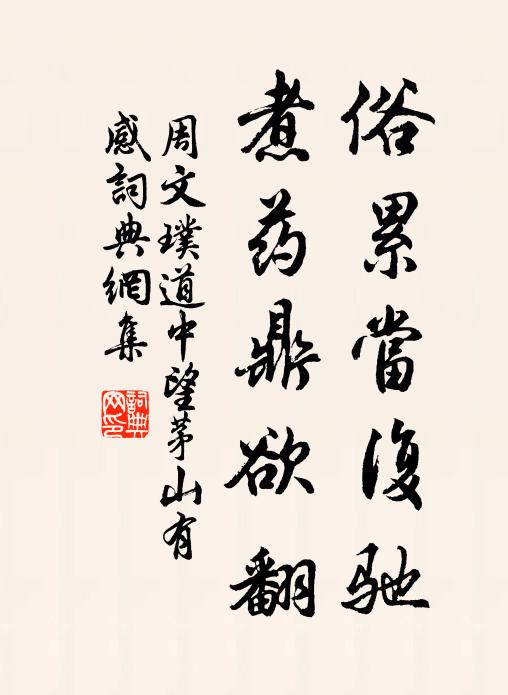 俗累當復馳
煮药鼎欲翻
周文璞道中望茅山有
感詞典網集
詞典网印